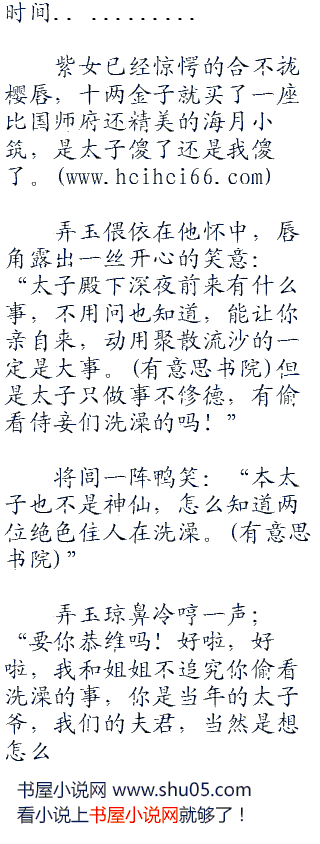 时间.. .........
紫女已经惊愕的合不拢
樱唇，十两金子就买了一座
比国师府还精美的海月小
筑，是太子傻了还是我傻
了。(www.hcihci66.com)
弄玉偎依在他怀中，唇
角露出一丝开心的笑意：
“太子殿下深夜前来有什么
事，不用问也知道，能让你
亲自来，动用聚散流沙的一
定是大事。(有意思书院)但
是太子只做事不修德，有偷
看侍妾们洗澡的吗！”
将闾一阵鸭笑：“本太
子也不是神仙，怎么知道两
位绝色佳人在洗澡。(有意思
书院)”
弄玉琼鼻冷哼一声；
“要你恭维吗！好啦，好
啦，我和姐姐不追究你偷看
洗澡的事，你是当年的太子
爷，我们的夫君，当然是想
怎么
书屋小说网 www.shu05.com
看小说上书屋小说网就够了！